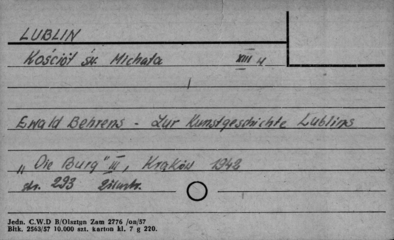 LUBLIN
Kościół św. Michała XIII w
Ewald Behrens - Zur Kunstgeschichte Lublins
"Die Burg" III, Kraków 1942
str. 293 2 ilustr.
Jedn. C.W.D B/Olsztyn Zam 2776 /on/57
Bltk. 2563/57 10.000 szt. karton kl. 7 g 220.